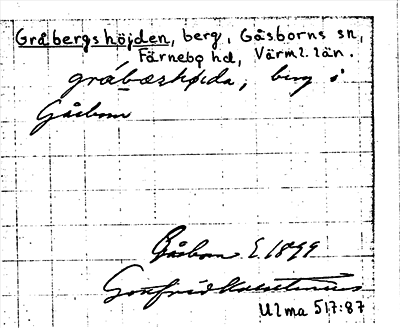 Gråbergshöjden, berg, Gåsborns sn,
Färnebo hd, Värml. län.
gråbærshøida, berg i
Gåsborn
Gåsborn E. 1899
Gottfrid Kallstenius
Ulma 517:87